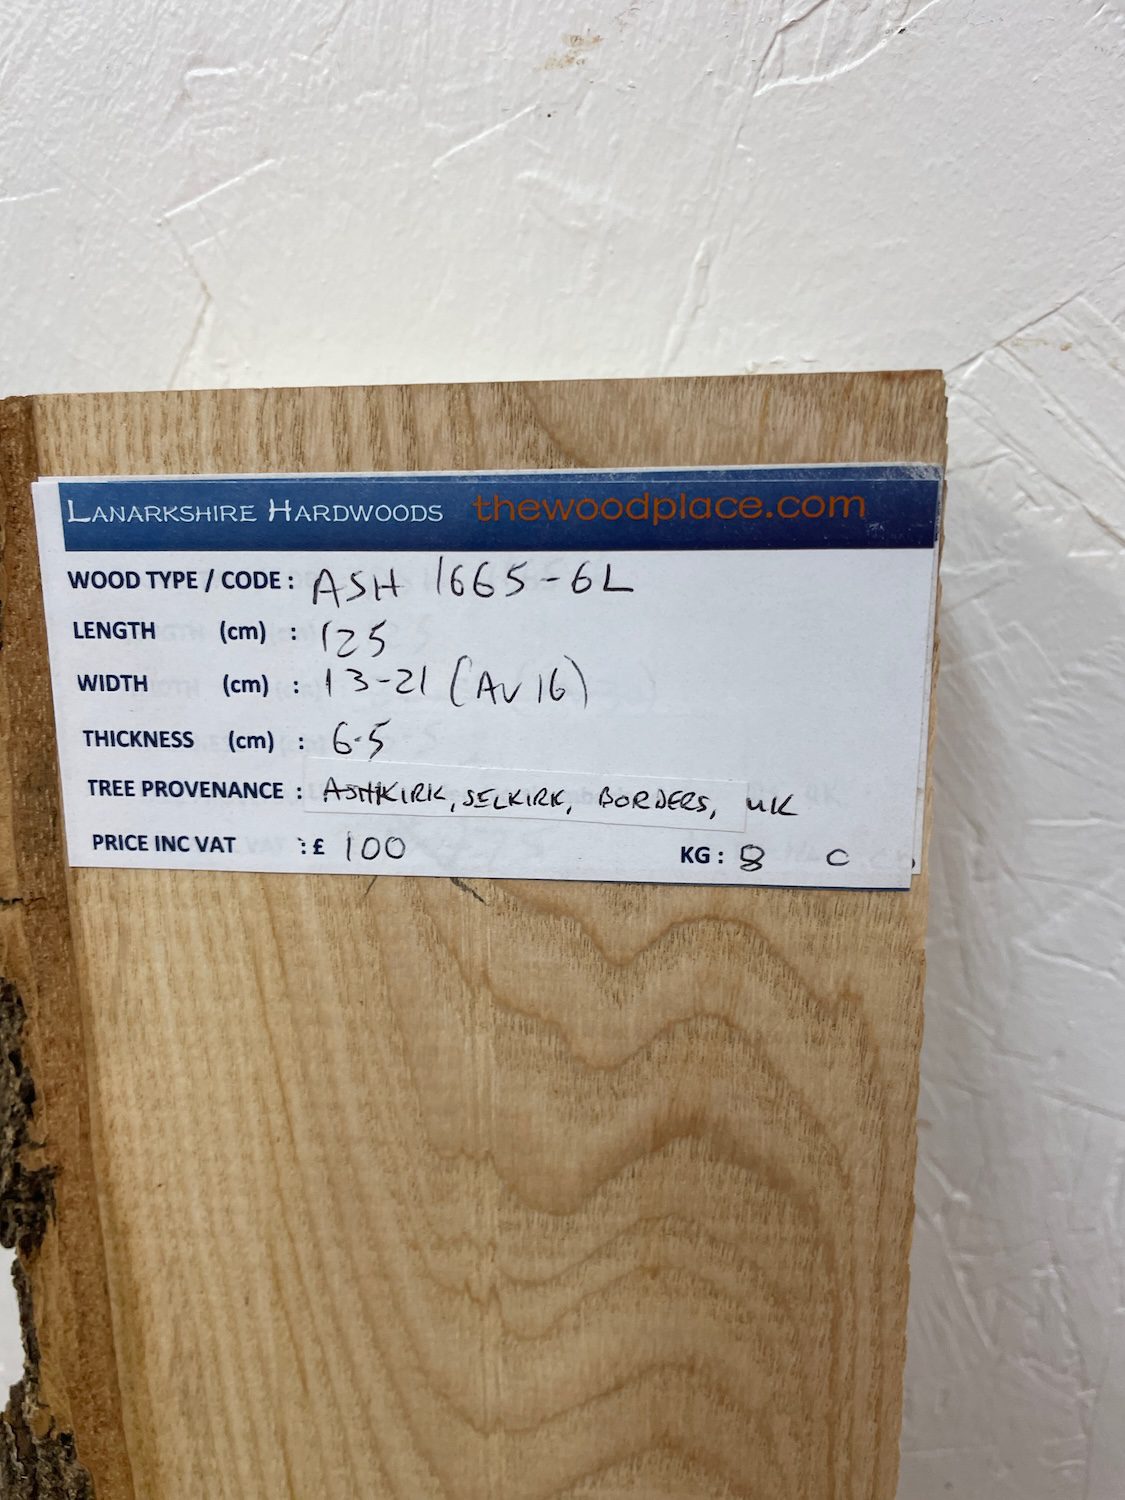 LANARKSHIRE HARDWOODS thewoodplace.com
WOOD TYPE / CODE : ASH 1665-6L
LENGTH (cm) : 125
WIDTH (cm) : 13-21 (AV 16)
THICKNESS (cm) : 6.5
TREE PROVENANCE : ASHKIRK, SELKIRK, BORDERS, UK
PRICE INC VAT : £ 100 KG : 8 C